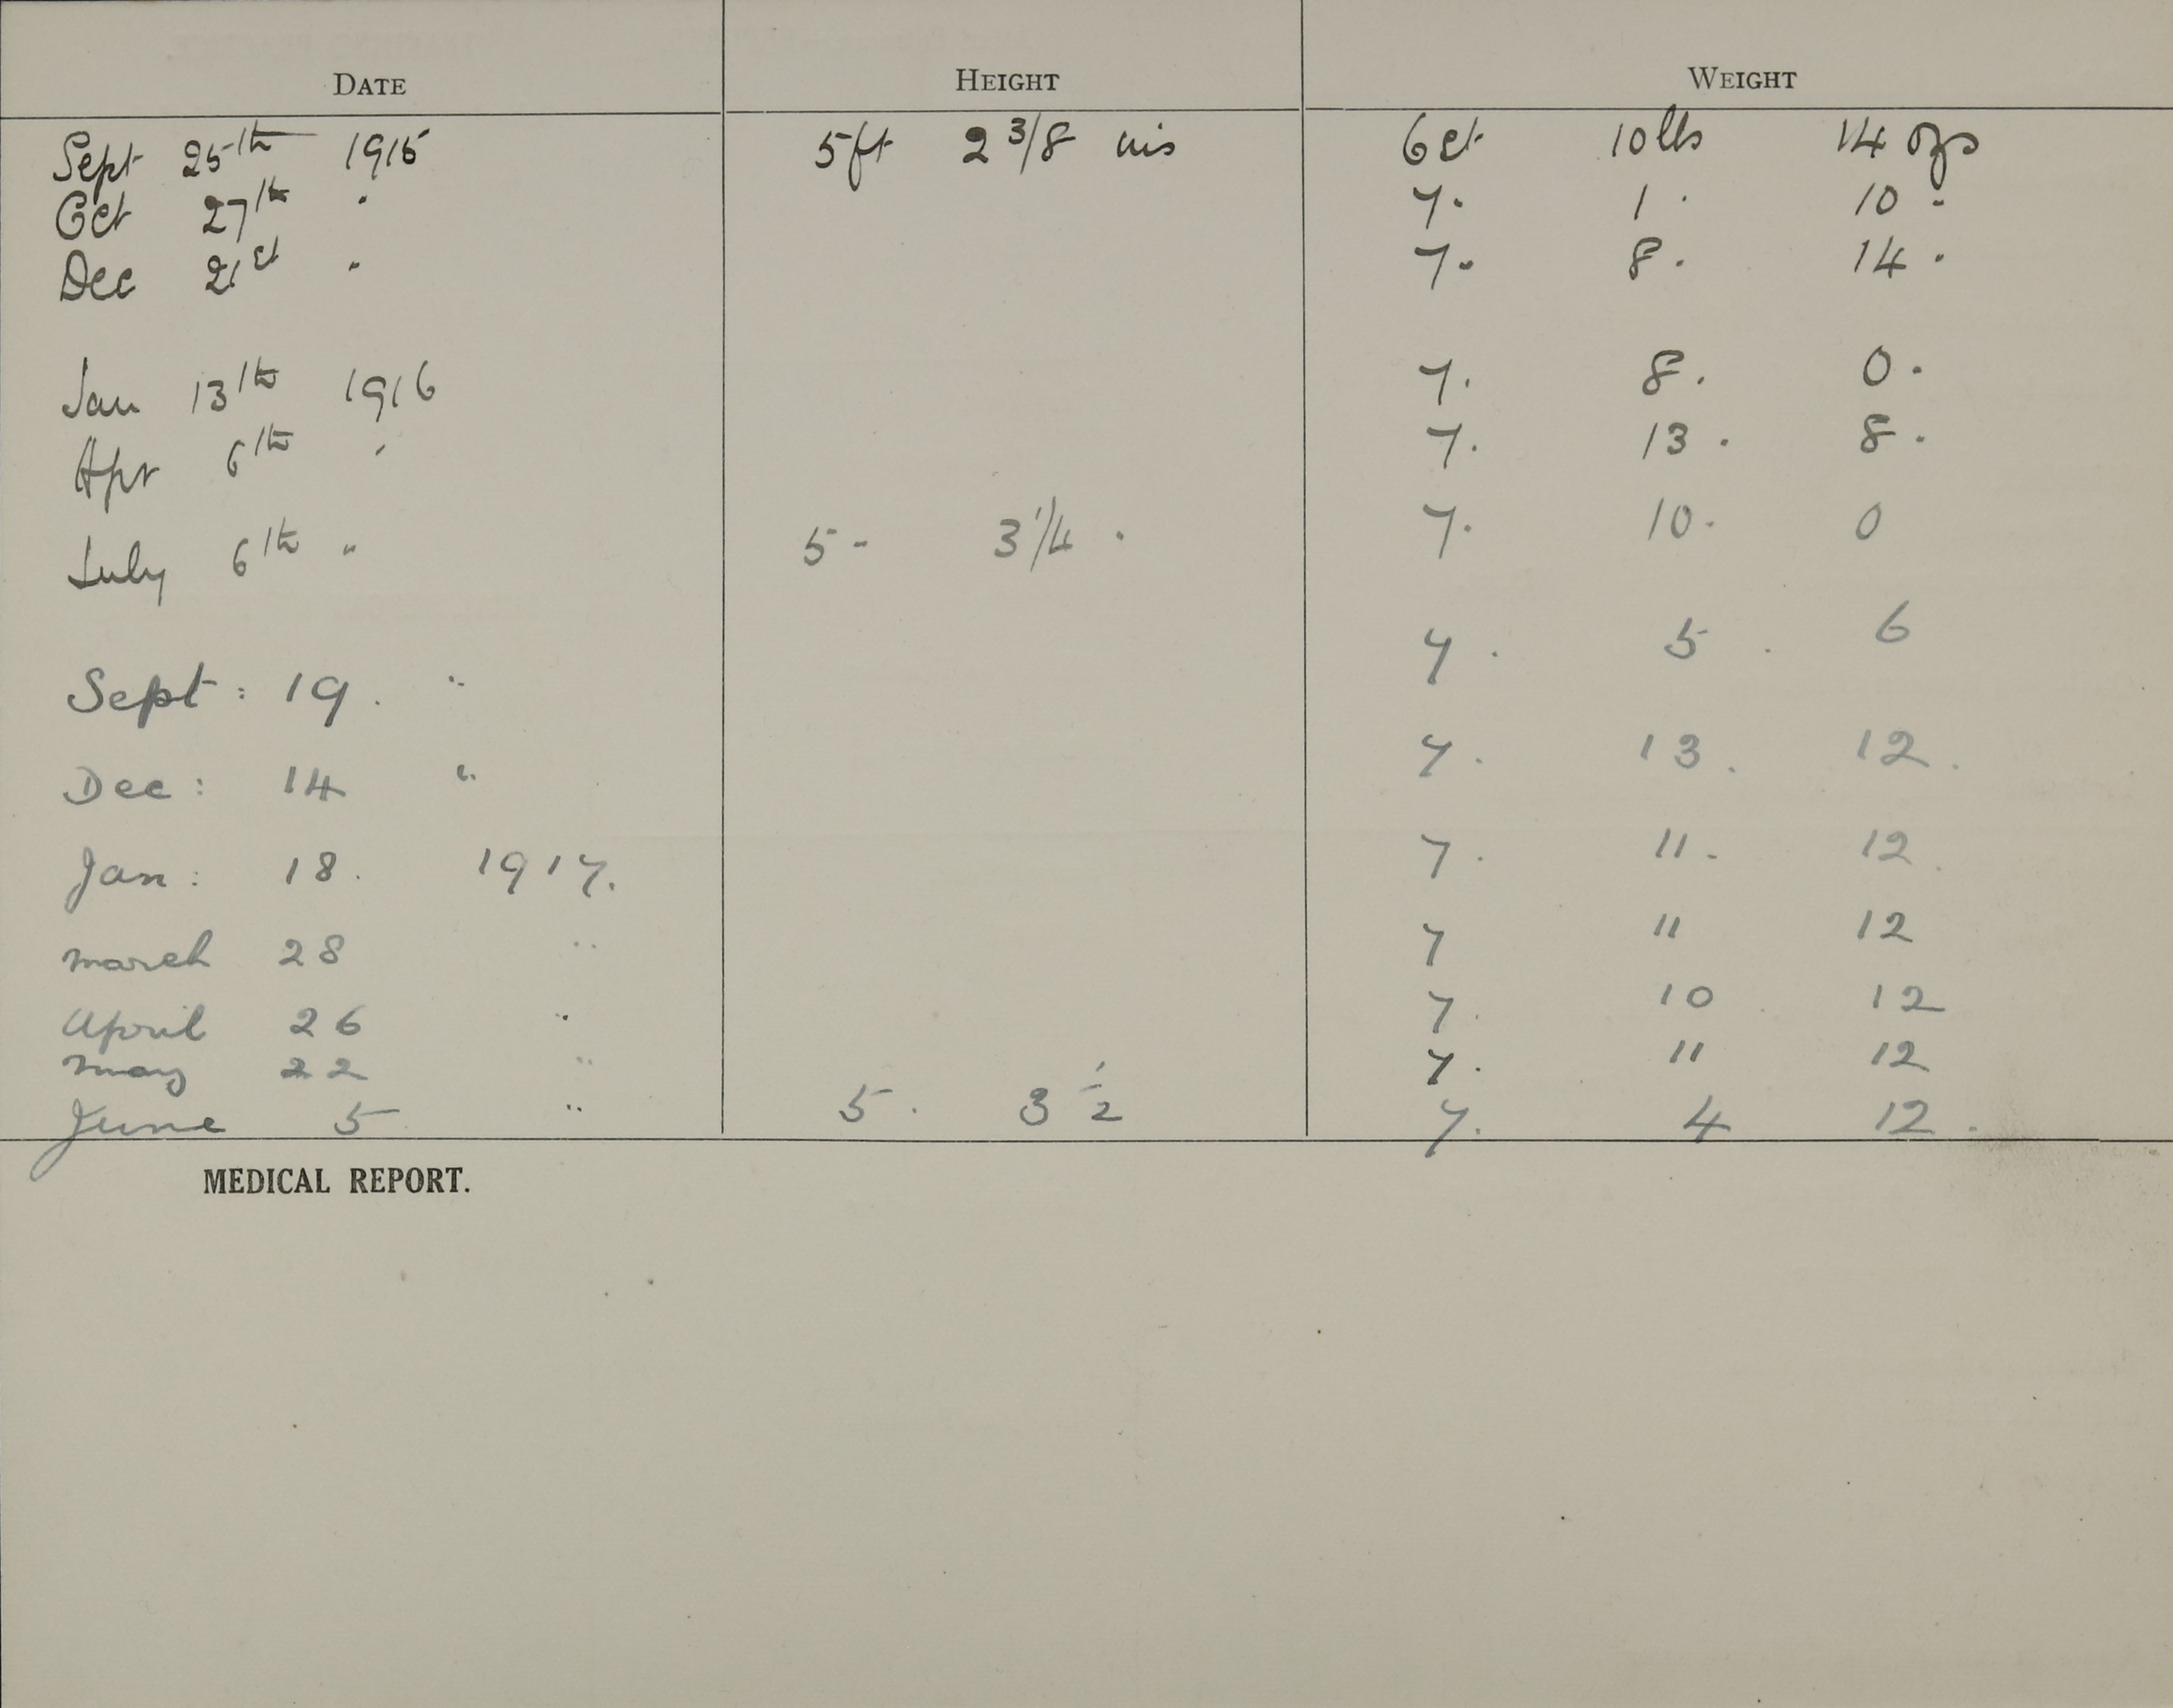 DATE HEIGHT WEIGHT
Sept 25th 1915 5ft 2 3/8 ins 6 st 10 lbs 14 ozs
Oct 27th " 7. 1. 10.
Dec 21st " 7. 8. 14.
Jan 13th 1916 7. 8. 0.
Apr 6th " 7. 13. 8.
July 6th " 5 - 3 1/4 . 7. 10. 0
Sept: 19. " 7. 5. 6
Dec: 14 " 7. 13. 12.
Jan: 18. 1917. 7. 11. 12.
March 28 " 7 11 12
April 26 " 7. 10 12
May 22 " 7. 11 12
June 5 " 5. 3 1/2 7. 4 12.
MEDICAL REPORT.